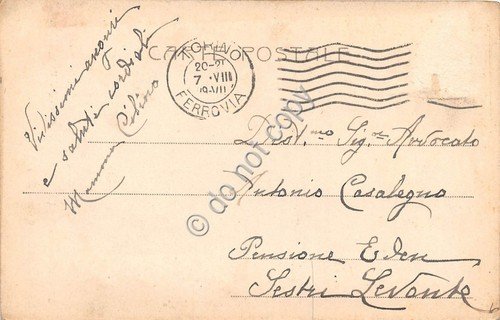 CARTOLINA POSTALE
TORINO
20-21
7 · VIII
FERROVIA
Vivissimi auguri
e saluti cordiali
Mamma
Dist.mo Sig.or Avvocato
Antonio Casalegno
Pensione Eden
Sestri Levante
© do not copy